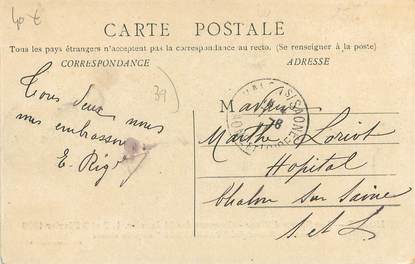 40 €
CARTE POSTALE
Tous les pays étrangers n'acceptent pas la correspondance au recto. (Se renseigner à la poste)
CORRESPONDANCE
ADRESSE
39
Tous deux nous
vous embrassons
E. Rig
Madame
Marthe Loriot
Hopital
Chalon sur Saône
S. et L.